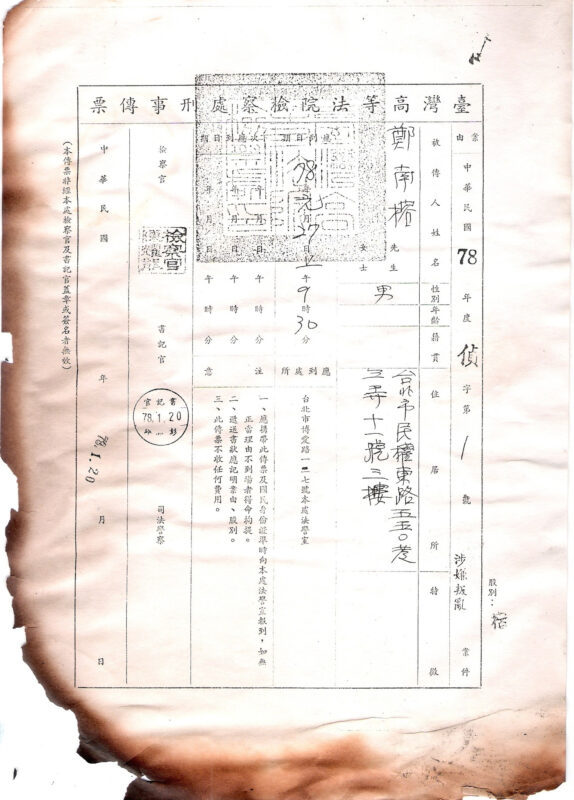 臺灣高等法院檢察處刑事傳票
股別：
案由 中華民國78年度偵字第1號涉嫌叛亂案件
被傳人姓名 性別 年齡 籍貫 住居所 特徵
鄭南榕 先生 女士 男 台北市民權東路五五〇巷
三弄十一號三樓
應到日期 78年元月27日上午9時30分
應到處所 台北市博愛路一二七號本處法警室
次應到日期 年月日午時分
年月日午時分
年月日午時分
注意 一、應攜帶此傳票及國民身份證準時向本處法警室報到，如無
正當理由不到場者得命拘提。
二、遞送書狀應記明案由、股別。
三、此傳票不收任何費用。
檢察官 檢察官 書記官 書記官 78.1.20 司法警察
中華民國 年 78.1.20 月 日
（本傳票非經本處檢察官及書記官蓋章或簽名者無效）